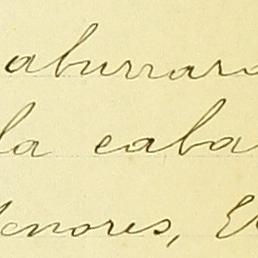 aburrara
la caba
enores, E